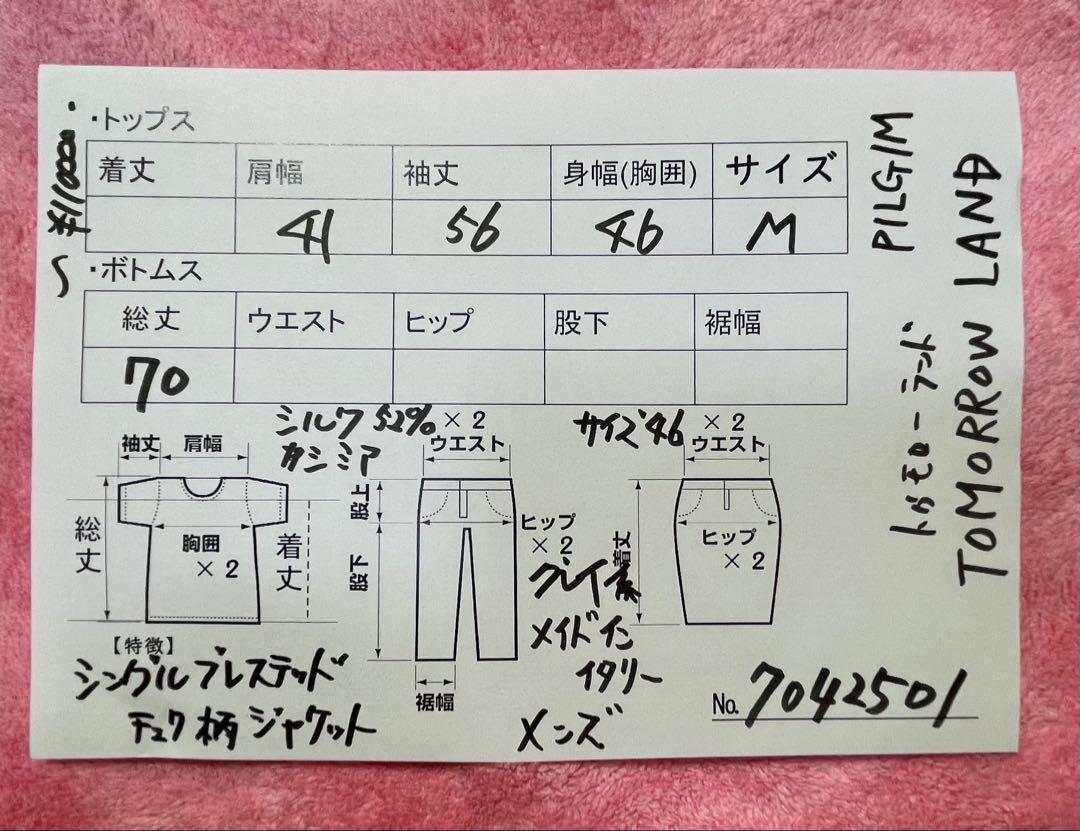 ・トップス
着丈 肩幅 袖丈 身幅(胸囲) サイズ
41 56 46 M
・ボトムス
総丈 ウエスト ヒップ 股下 裾幅
70
シルク52%
カシミア
サイズ46
袖丈 肩幅
× 2
ウエスト
× 2
ウエスト
総丈
胸囲
× 2
着丈
股上
股下
ヒップ
× 2
裾幅
着丈
ヒップ
× 2
グレイ系
メイドイン
イタリー
メンズ
【特徴】
シングルブレステッド
チェック柄ジャケット
No. 7042501
PILGIM
TOMORROW LAND